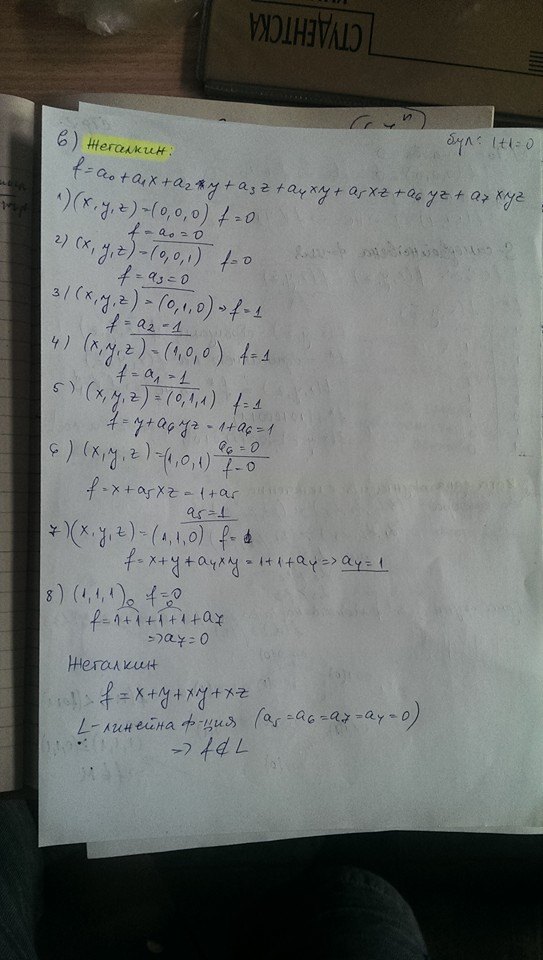 СТУДЕНТСКА
в) Жегалкин:
бул: 1+1=0
f=a₀+a₁x+a₂*y+a₃z+a₄xy+a₅xz+a₆yz+a₇xyz
1)(x,y,z)=(0,0,0) f=0
f=a₀=0
2) (x,y,z)=(0,0,1) f=0
f=a₃=0
3) (x,y,z)=(0,1,0)⇒f=1
f=a₂=1
4) (x,y,z)=(1,0,0) f=1
f=a₁=1
5) (x,y,z)=(0,1,1) f=1
f=y+a₆yz=1+a₆=1
a₆=0
6) (x,y,z)=(1,0,1) f=0
f=x+a₅xz=1+a₅
a₅=1
7)(x,y,z)=(1,1,0) f=1
f=x+y+a₄xy=1+1+a₄⇒a₄=1
8) (1,1,1) f=0
0 0
f=1+1+1+1+a₇
⇒a₇=0
Жегалкин
f=x+y+xy+xz
L-линейна ф-ция (a₅=a₆=a₇=a₄=0)
⇒ f∉L